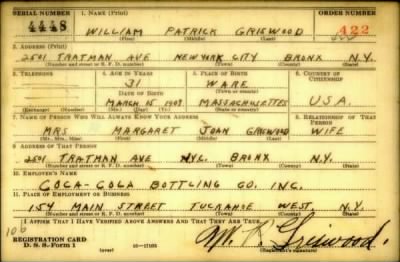 SERIAL NUMBER 1. NAME (Print) ORDER NUMBER
4448 WILLIAM PATRICK GRISWOOD 422
(First) (Middle) (Last)
2. ADDRESS (Print)
2501 TRATMAN AVE NEW YORK CITY BRONX N.Y.
(Number and street or R. F. D. number) (Town) (County) (State)
3. TELEPHONE 4. AGE IN YEARS 5. PLACE OF BIRTH 6. COUNTRY OF CITIZENSHIP
31 WARE
DATE OF BIRTH (Town or county)
MARCH 15 1909 MASSACHUSETTS U.S.A.
(Exchange) (Number) (Mo.) (Day) (Yr.) (State or country)
7. NAME OF PERSON WHO WILL ALWAYS KNOW YOUR ADDRESS 8. RELATIONSHIP OF THAT PERSON
MRS MARGARET JOAN GRISWOOD WIFE
(Mr., Mrs., Miss) (First) (Middle) (Last)
9. ADDRESS OF THAT PERSON
2501 TRATMAN AVE NYC. BRONX N.Y.
(Number and street or R. F. D. number) (Town) (County) (State)
10. EMPLOYER'S NAME
COCA-COLA BOTTLING CO. INC.
11. PLACE OF EMPLOYMENT OR BUSINESS
154 MAIN STREET TUCKAHOE WEST. N.Y.
(Number and street or R. F. D. number) (Town) (County) (State)
I AFFIRM THAT I HAVE VERIFIED ABOVE ANSWERS AND THAT THEY ARE TRUE.
106
REGISTRATION CARD
D. S. S. Form 1 (over) 16—17105 (Registrant's signature)